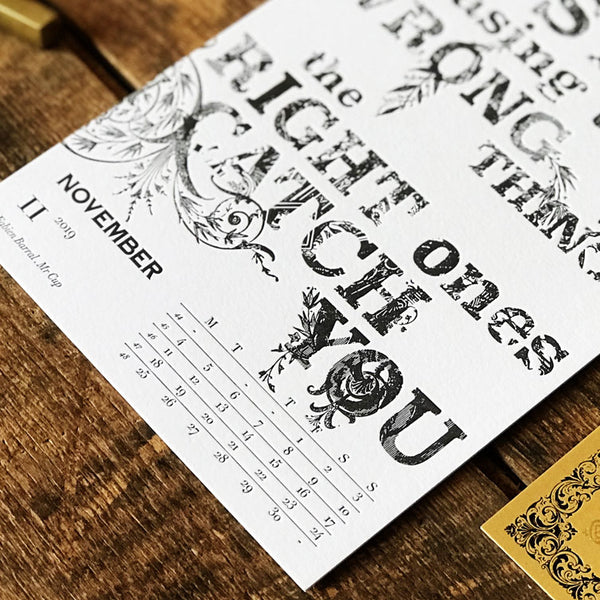 WRONG
THING
the
RIGHT ones
CATCH
YOU
NOVEMBER
11 2019
Fabian Barral . Mr Cup
M T - T F S S
44 - - - - 1 2 3
45 4 5 6 7 8 9 10
46 11 12 13 14 15 16 17
47 18 19 20 21 22 23 24
48 25 26 27 28 29 30 -